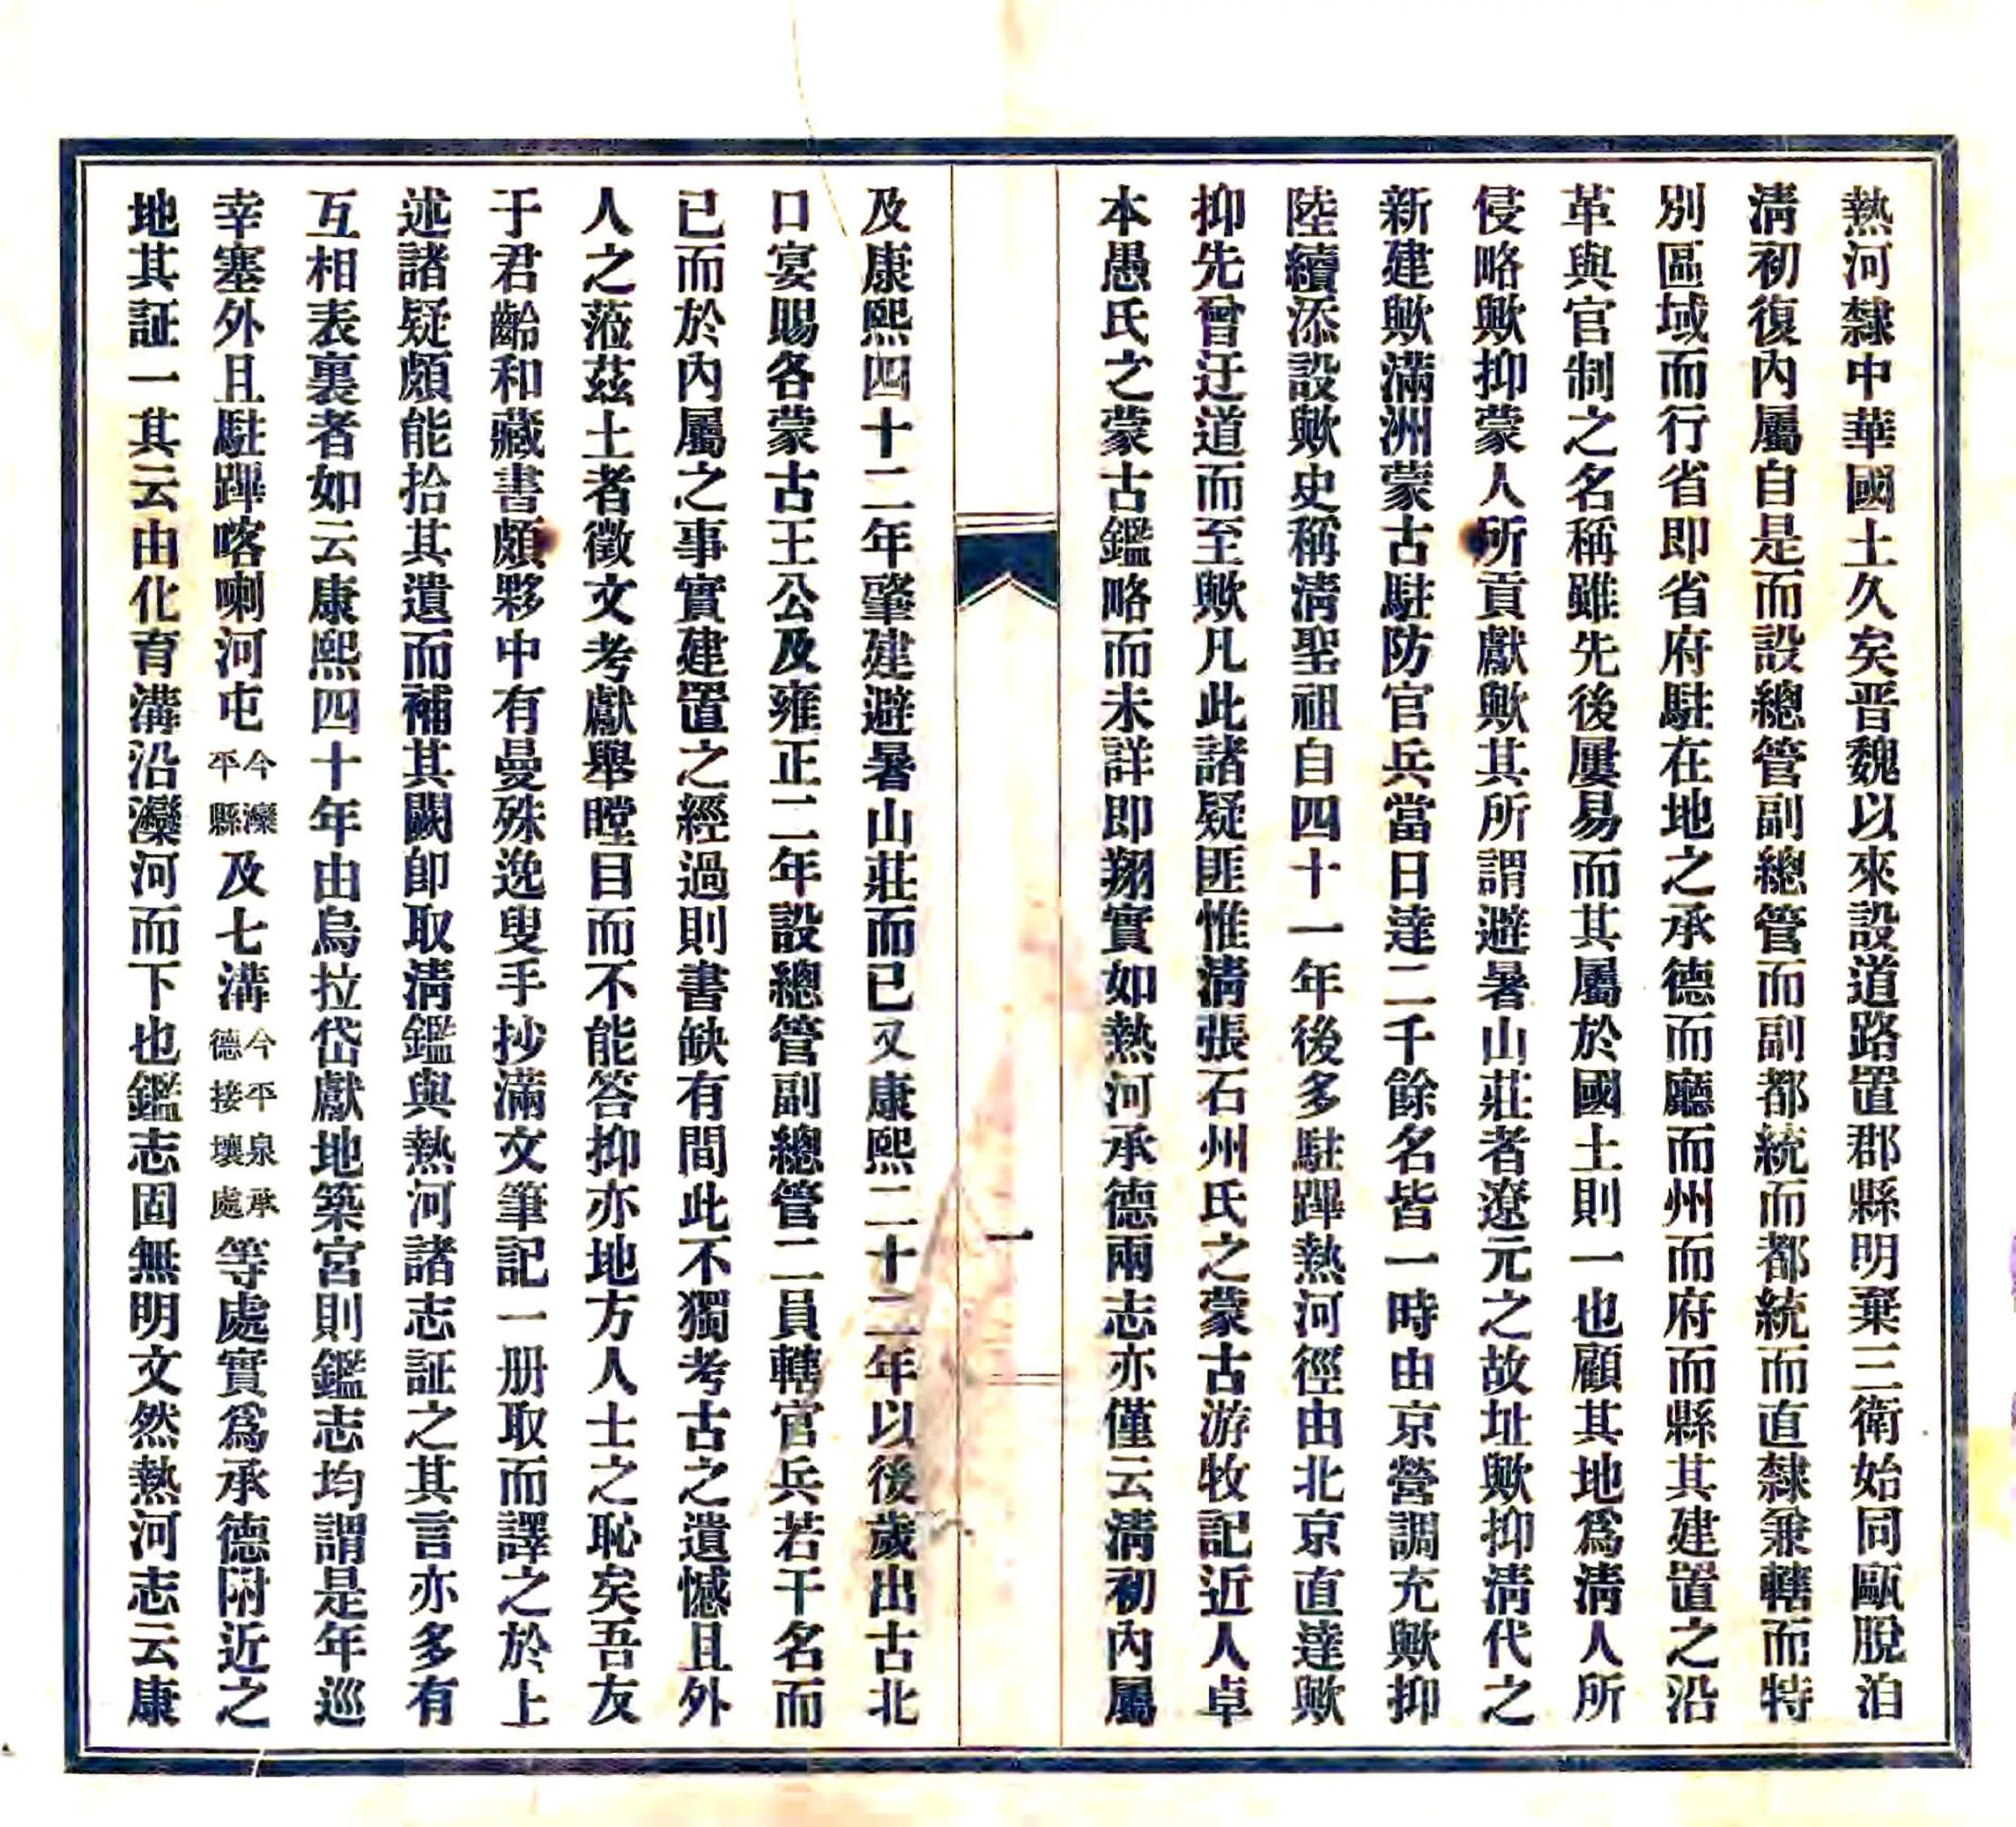 熱河隸中華國土久矣晋魏以來設道路置郡縣明棄三衛始同甌脫洎
淸初復內屬自是而設總管副總管而副都統而都統而直隸兼轄而特
別區域而行省即省府駐在地之承德而廳而州而府而縣其建置之沿
革與官制之名稱雖先後屢易而其屬於國土則一也顧其地爲淸人所
侵略歟抑蒙人所貢獻歟其所謂避暑山莊者遼元之故址歟抑淸代之
新建歟滿洲蒙古駐防官兵當日達二千餘名皆一時由京營調充歟抑
陸續添設歟史稱淸聖祖自四十一年後多駐蹕熱河徑由北京直達歟
抑先曾迂道而至歟凡此諸疑匪惟淸張石州氏之蒙古游牧記近人卓
本愚氏之蒙古鑑略而未詳即翔實如熱河承德兩志亦僅云淸初內屬
一
及康熙四十二年肇建避暑山莊而已又康熙二十二年以後歲出古北
口宴賜各蒙古王公及雍正二年設總管副總管二員轄官兵若干名而
已而於內屬之事實建置之經過則書缺有間此不獨考古之遺憾且外
人之蒞茲土者徵文考獻舉瞠目而不能答抑亦地方人士之恥矣吾友
于君齡和藏書頗夥中有曼殊逸叟手抄滿文筆記一册取而譯之於上
述諸疑頗能拾其遺而補其闕即取淸鑑與熱河諸志証之其言亦多有
互相表裏者如云康熙四十年由烏拉岱獻地築宮則鑑志均謂是年巡
幸塞外且駐蹕喀喇河屯今灤平縣及七溝今平泉承德接壤處等處實爲承德附近之
地其証一其云由化育溝沿灤河而下也鑑志固無明文然熱河志云康